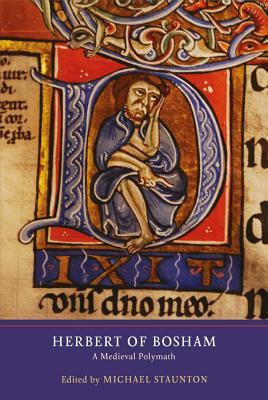 di
ent.
D
IXIT
dn̄s dn̄o meo.
HERBERT OF BOSHAM
A Medieval Polymath
Edited by MICHAEL STAUNTON